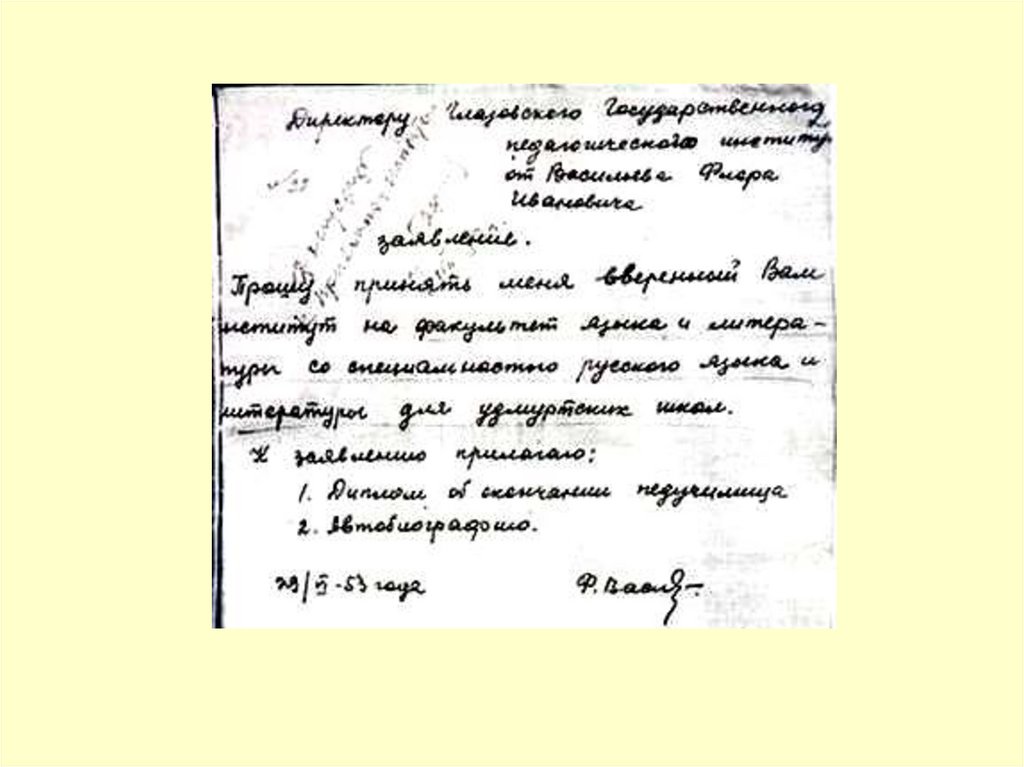 Директору Глазовского Государственного
педагогического институт
от Васильева Флора
Ивановича
заявление.
Прошу принять меня вверенный Вам
институт на факультет языка и литера-
туры со специальностью русского языка и
литературы для удмуртских школ.
К заявлению прилагаю:
1. Диплом об окончании педучилища
2. Автобиографию.
29/VI-53 года Ф. Васил